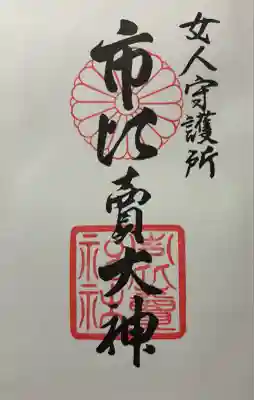 女人守護所
市比賣大神
市比賣神社